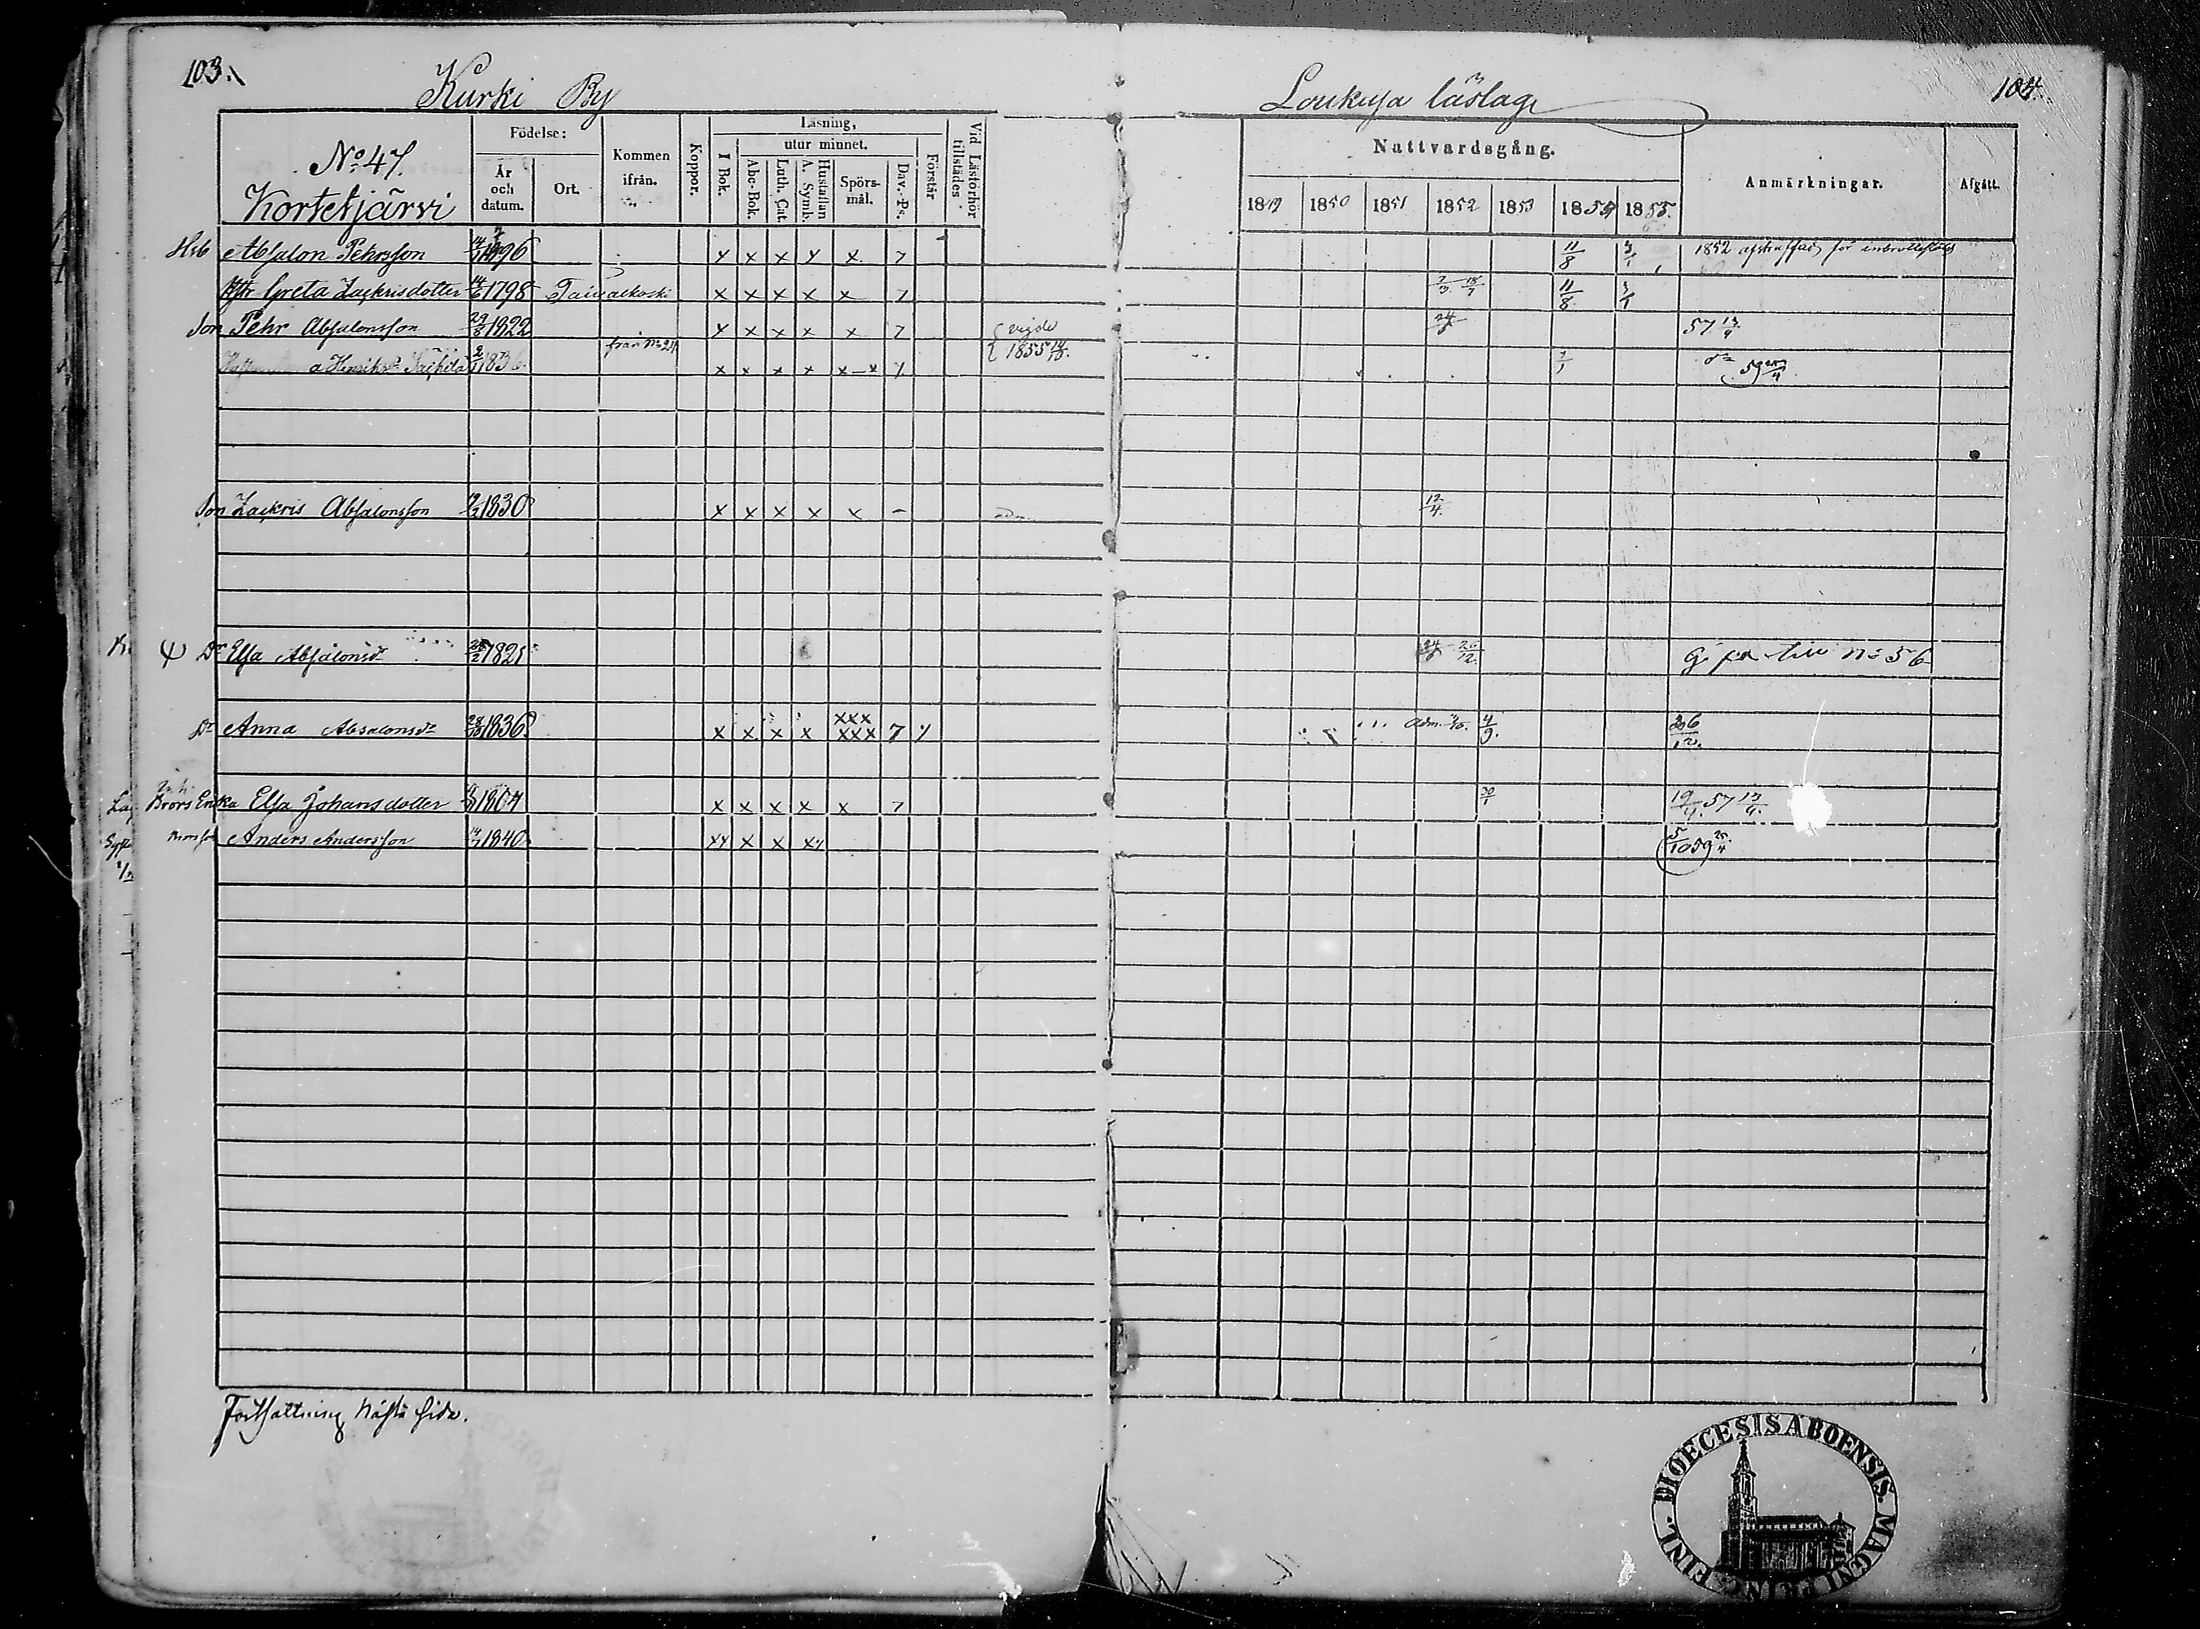 103.
Kurki By
Loukusa läslag
104.
No 47.
Kortetjärvi
Födelse:
År och datum.
Ort.
Kommen ifrån.
Koppor.
Läsning,
utur minnet.
I Bok.
Abc-Bok.
Luth. Cat.
Hustaflan A. Symb.
Spörs-mål.
Dav. Ps.
Förstår
Vid Läsförhör tillstädes
Nattvardsgång.
1849 1850 1851 1852 1853 1854 1855.
Anmärkningar.
Afgått.
Hsb Absalon Pehrsson 1796 x x x x x 7 11/8 1852 för
Hr Greta Zackrisdotter 14/6 1798 Taivalkoski x x x x x 7 11/8
Son Pehr Absalonsson 29/8 1822 x x x x x 7 vigde 24 57 13/9
a Henriksdr 2/1 1836 från No 24 x x x x x-x 1855 59
Son Zackris Absalonsson 1830 x x x x x - 12/4.
Dr Elsa Absalonsdr 1821 26/12. No 56
Dr Anna Absalonsdr 28/10 1836 x x x x xxx xxx 7 adm. 4/9. 206/12.
Brors Enka Elsa Johansdotter 1804 x x x x x 7 30/1 19/4. 57 13/9.
Anders Andersson 1840 x x x x x 5/10 59 25/4
Fortsättning nästa sida.
DIOECESIS ABOENSIS. MAGNI PRINC. FINL.